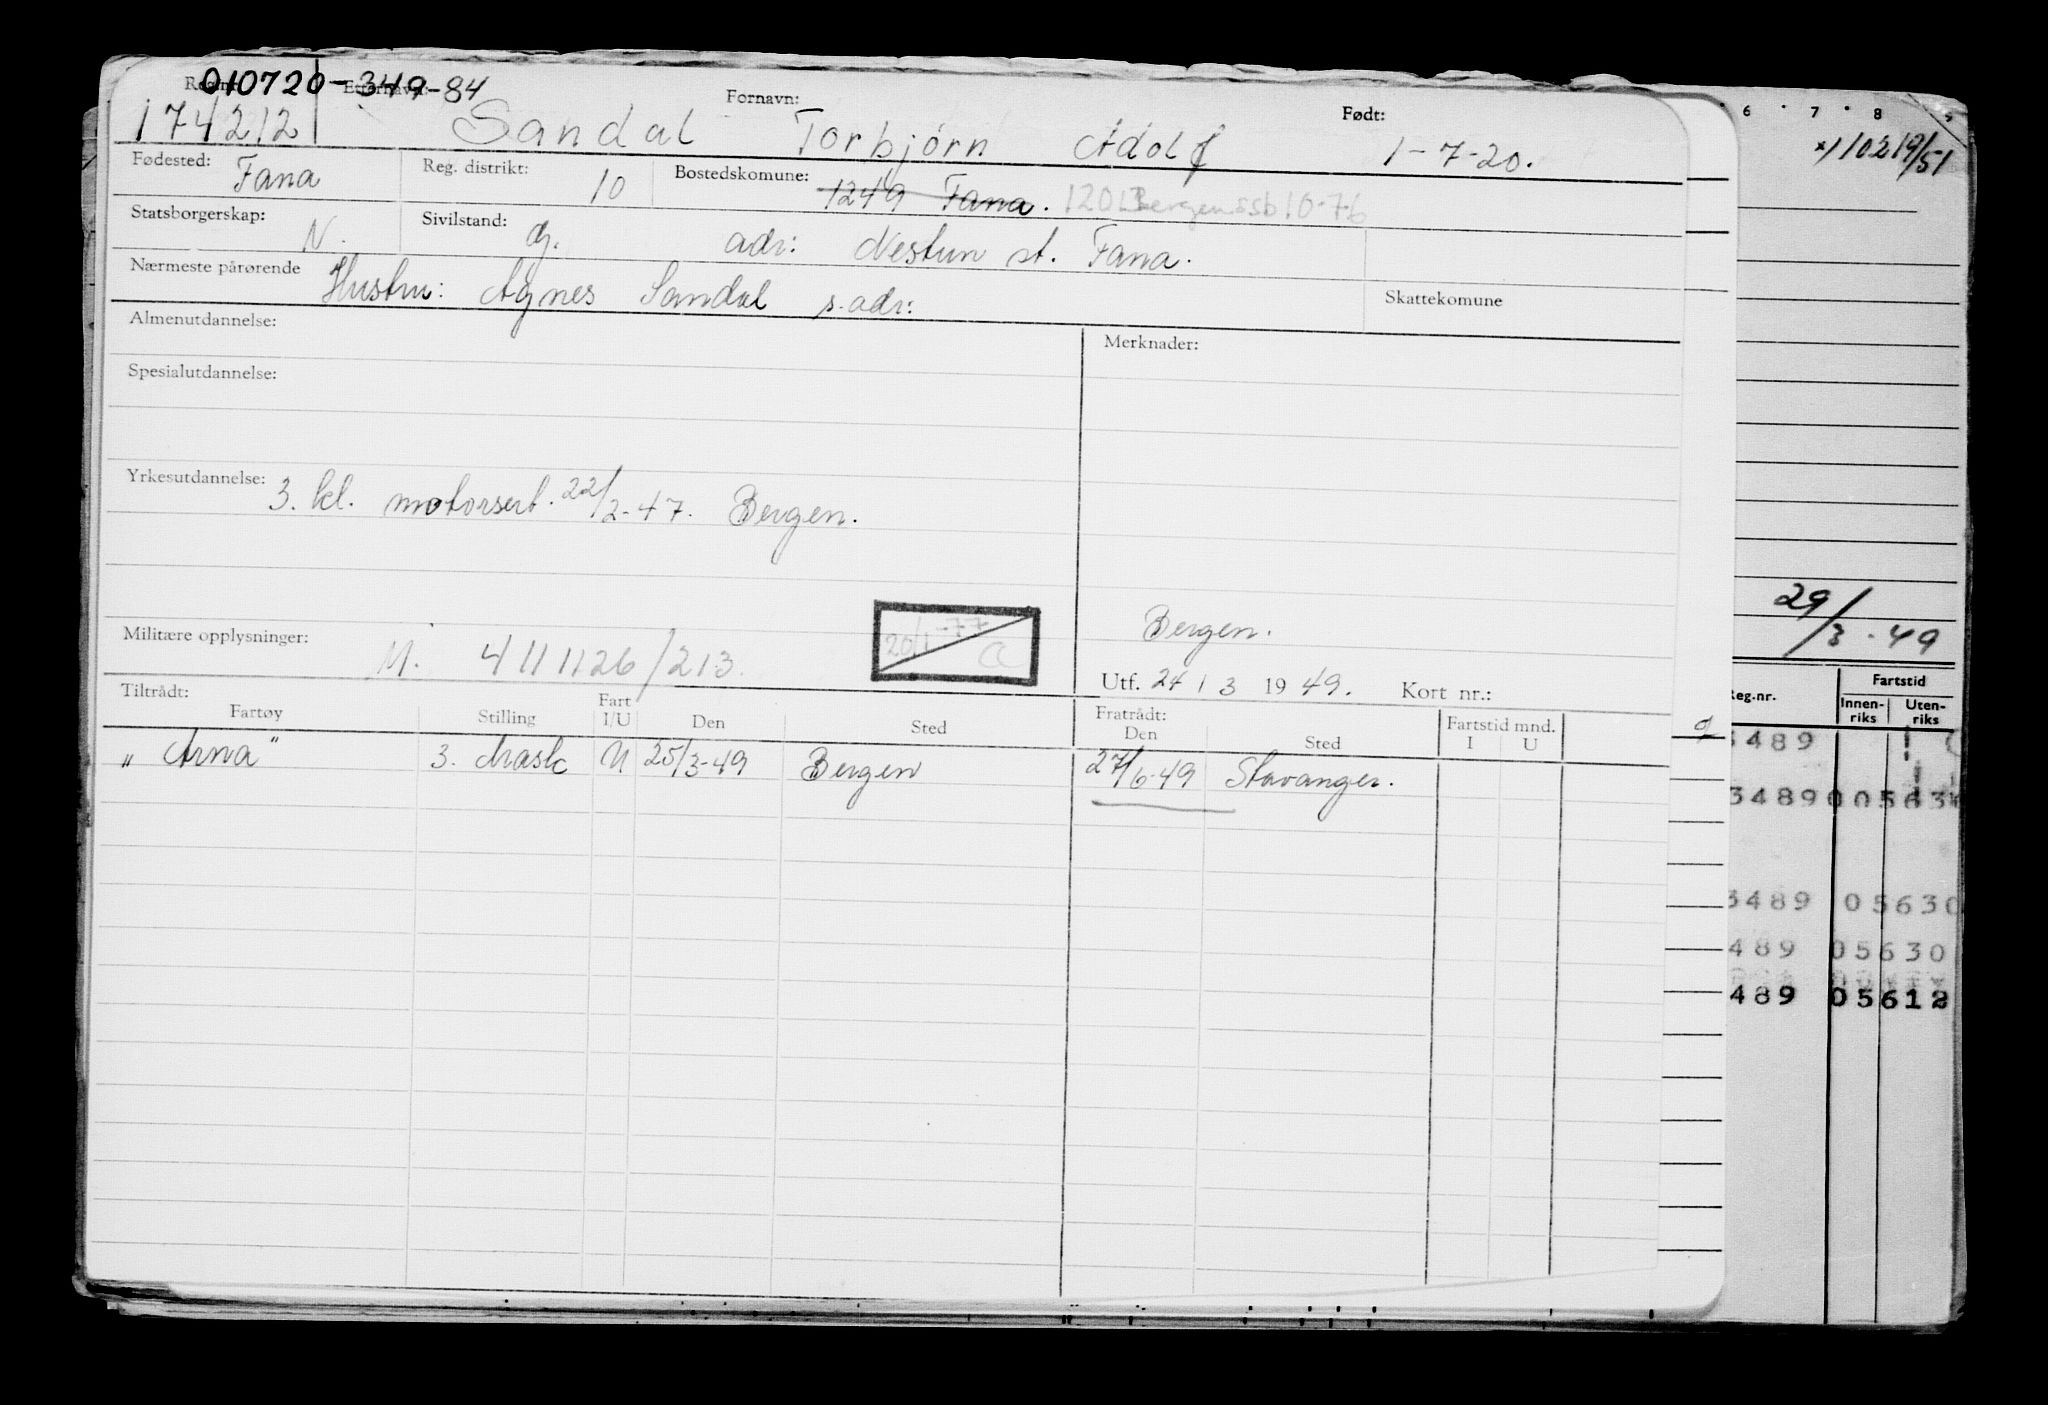 010720-349-84
Etternavn: Fornavn: Født:
174212 Sandal Torbjørn Adolf 1-7-20.
Fødested: Fana Reg. distrikt: 10 Bostedskomune: 1249 Fana. 1201 Bergen ssb 10-76
Statsborgerskap: N. Sivilstand: g. adr: Nestun st. Fana.
Nærmeste pårørende Hustru: Agnes Sandal s. adr: Skattekomune
Almenutdannelse: Merknader:
Spesialutdannelse:
Yrkesutdannelse: 3. kl. motorsert. 22/2-47. Bergen.
Militære opplysninger: M. 4111126/213. 20/1-77 a Bergen.
Utf. 24 / 3 19 49. Kort nr.:
Tiltrådt: Fratrådt:
Fartøy Stilling Fart I/U Den Sted Den Sted Fartstid mnd. I U
„Arna" 3. Mask U 25/3-49 Bergen 27/6-49 Stavanger.
6 7 8
x) 10219/51
29/3-49
Reg.nr. Fartstid
Innen-riks Uten-riks
3489
3489 005630
3489 05630
489 05630
489 05612